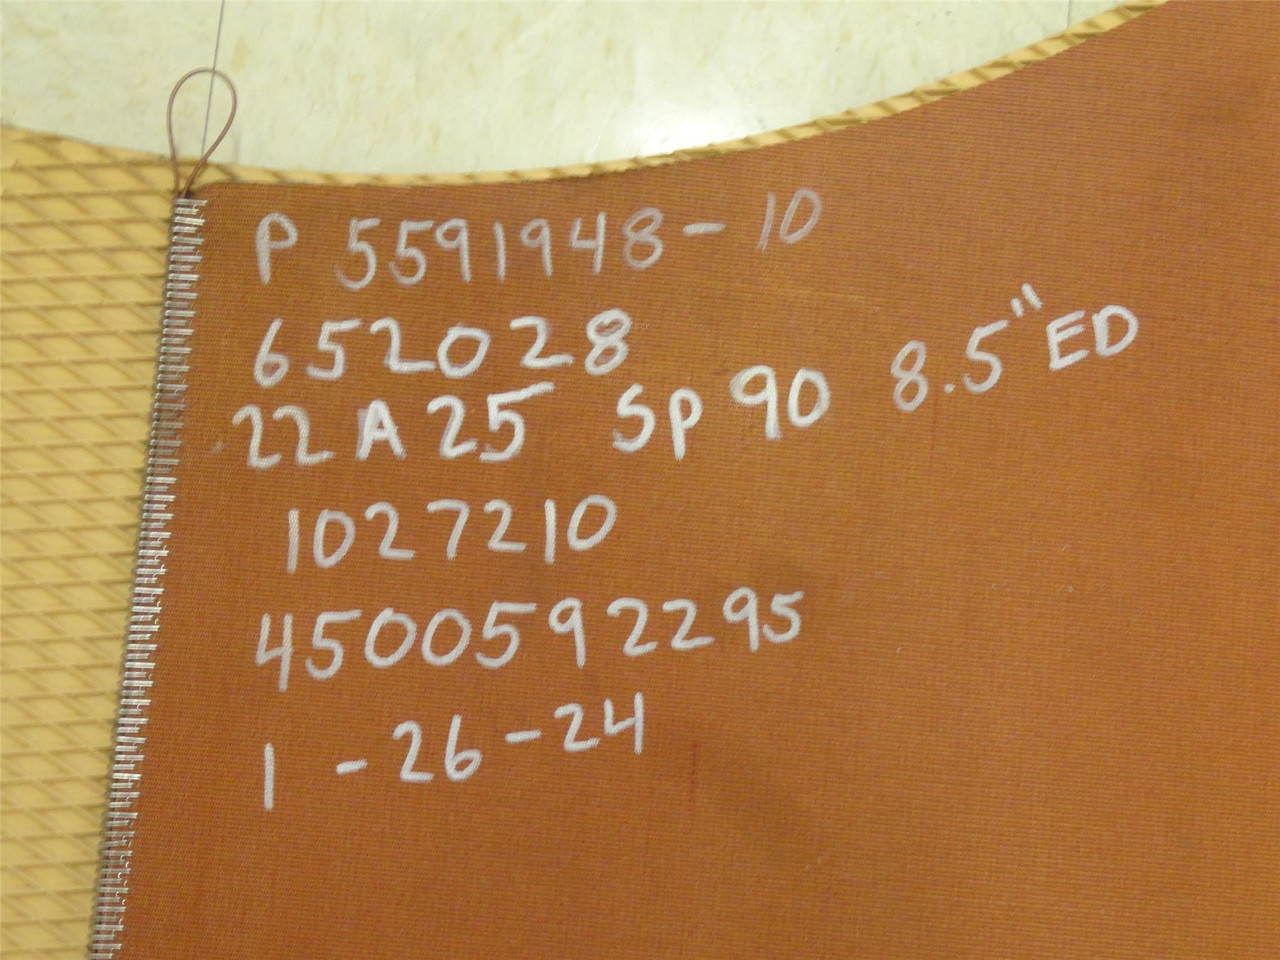 P 5591948-10
652028
22 A 25 Sp 90 8.5" ED
1027210
4500592295
1-26-24